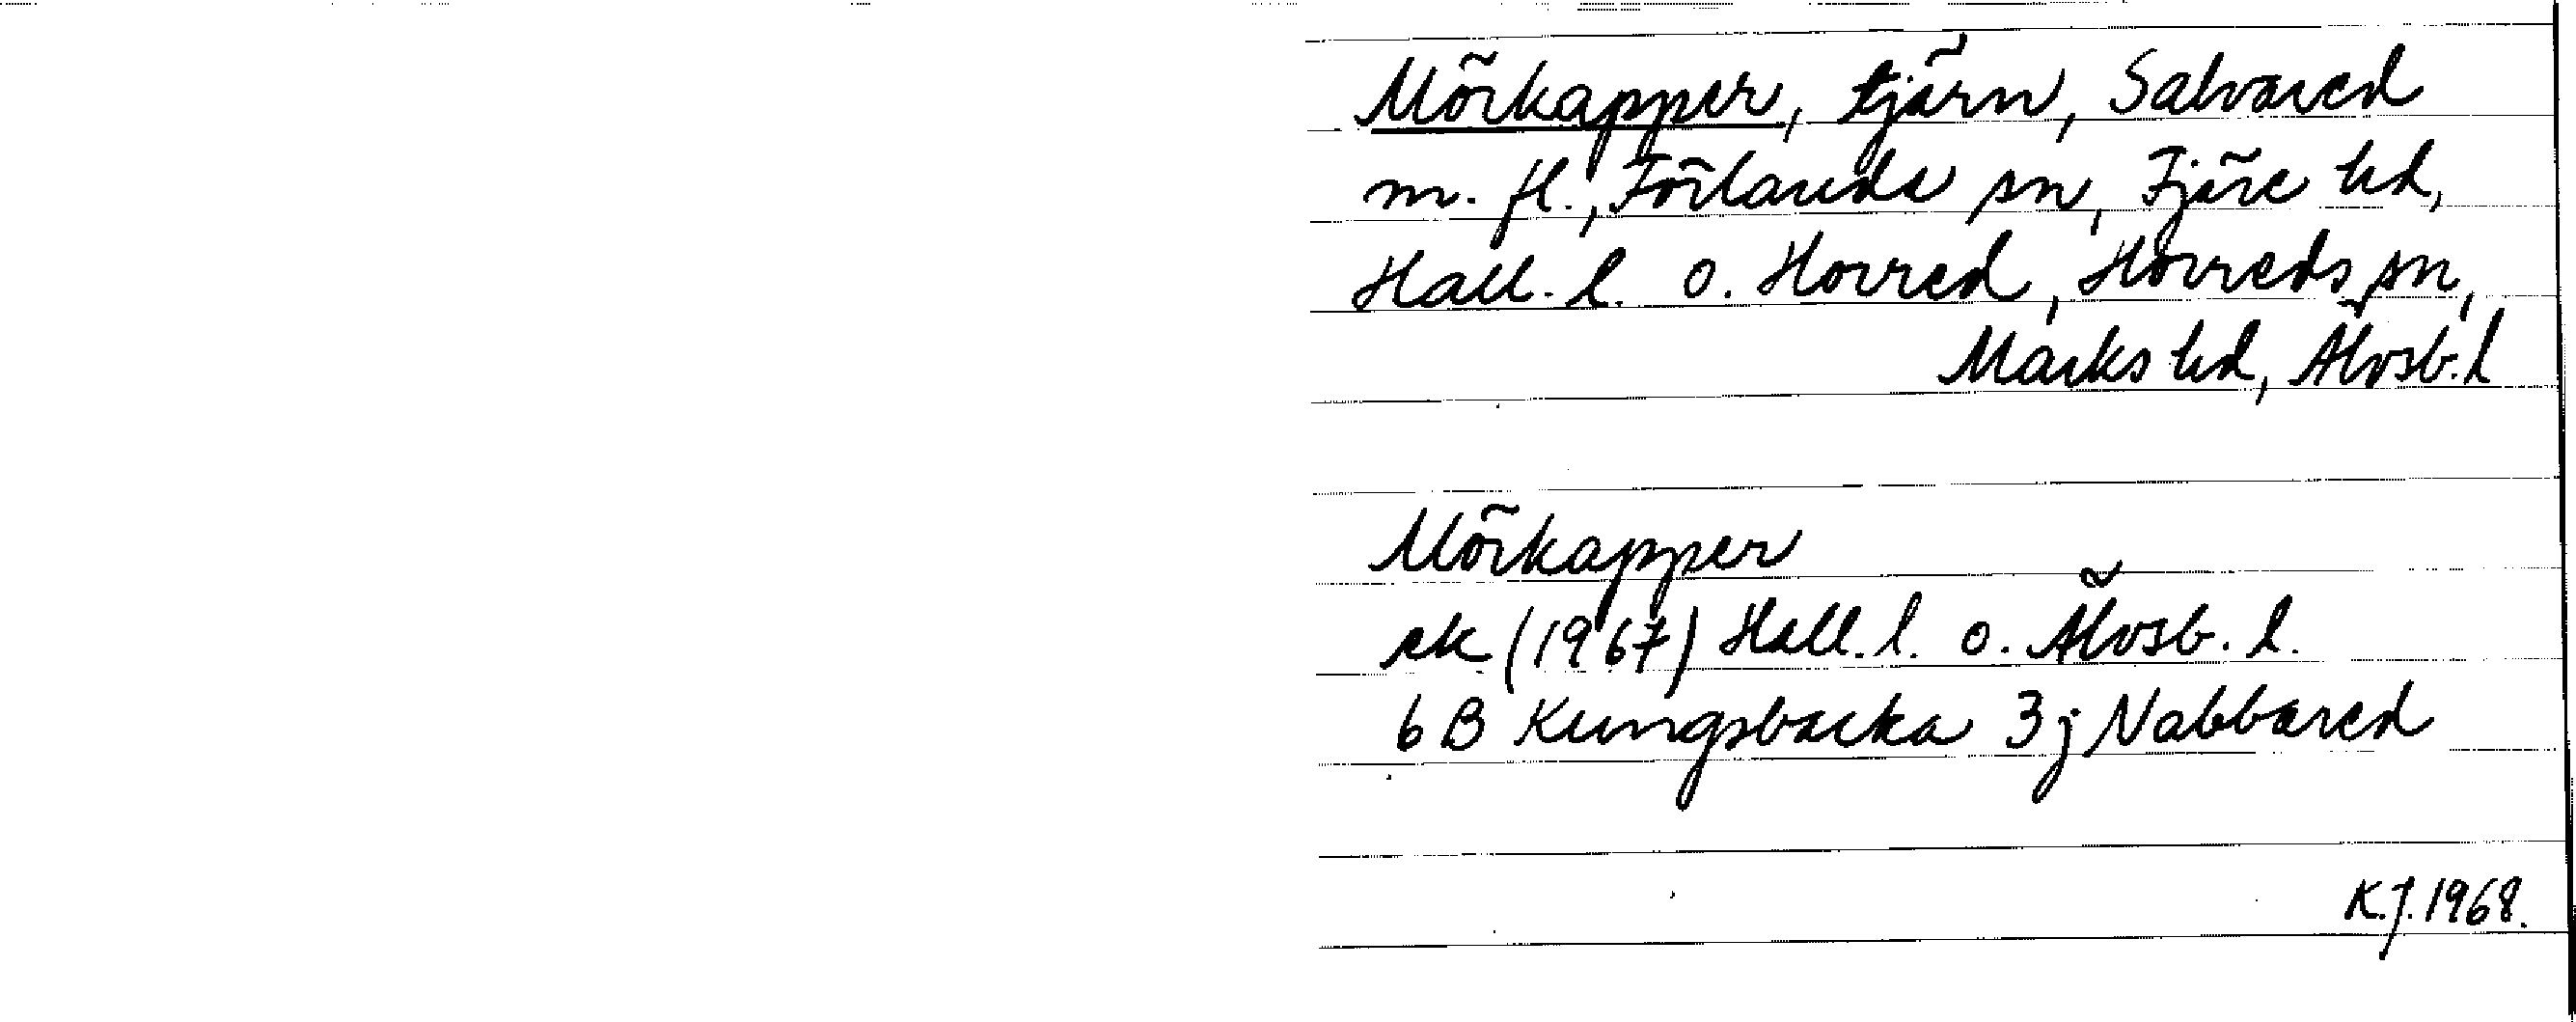 Mörkapper, tjärn, Salvared
m. fl., Förlanda sn, Fjäre hd,
Hall. l. o. Horred, Horreds sn,
Marks hd, Älvsb. l
Mörkapper
ek (1967) Hall. l. o. Älvsb. l.
6 B Kungsbacka 3 j Nabbared
K.J. 1968.